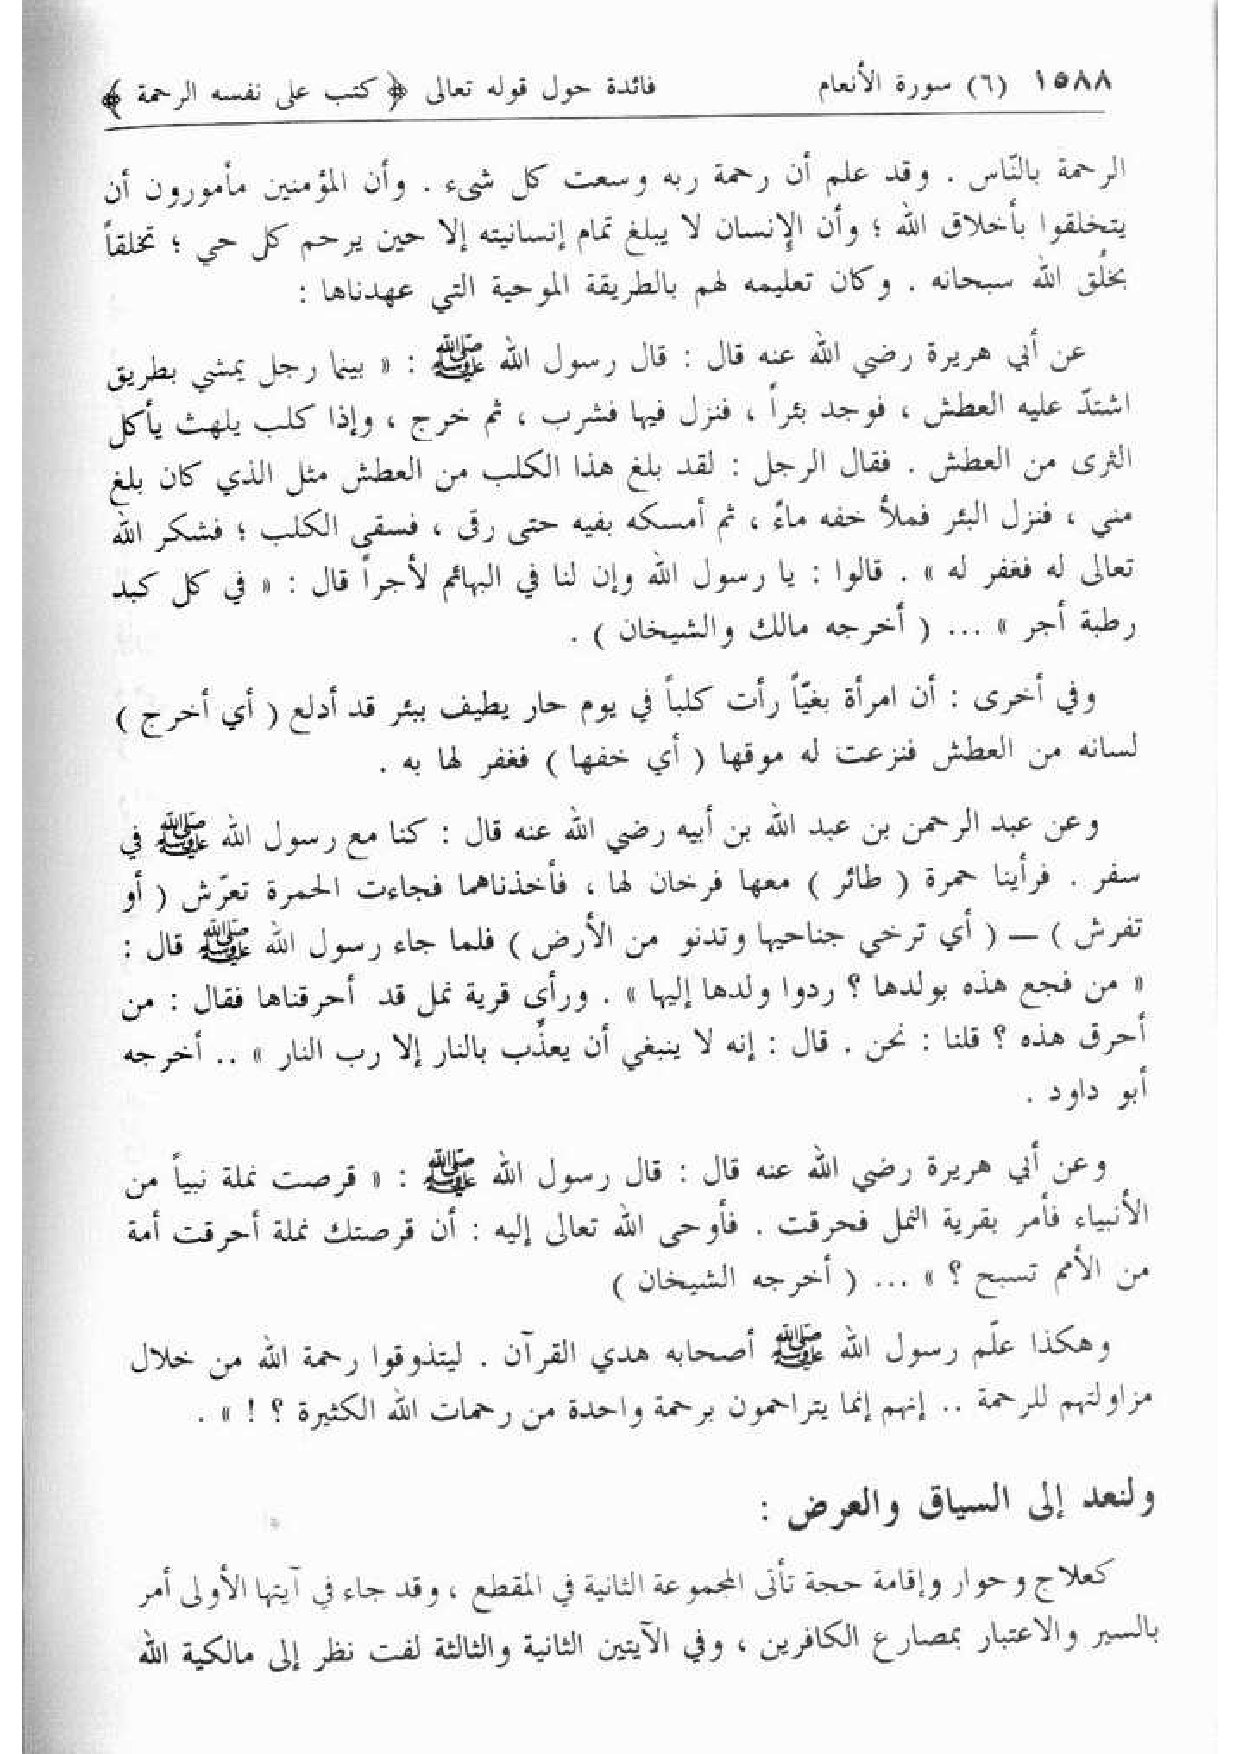 ١٥٨٨ (٦) سورة الأنعام فائدة حول قوله تعالى ﴿ كتب على نفسه الرحمة ﴾
الرحمة بالنّاس . وقد علم أن رحمة ربه وسعت كل شيء . وأن المؤمنين مأمورون أن
يتخلقوا بأخلاق الله ؛ وأن الإنسان لا يبلغ تمام إنسانيته إلا حين يرحم كل حي ؛ تخلقاً
بخُلق الله سبحانه . وكان تعليمه لهم بالطريقة الموحية التي عهدناها :
عن أبي هريرة رضي الله عنه قال : قال رسول الله ﷺ : « بينما رجل يمشي بطريق
اشتدّ عليه العطش ، فوجد بئراً ، فنزل فيها فشرب ، ثم خرج ، وإذا كلب يلهث يأكل
الثرى من العطش . فقال الرجل : لقد بلغ هذا الكلب من العطش مثل الذي كان بلغ
مني ، فنزل البئر فملأ خفه ماءً ، ثم أمسكه بفيه حتى رقى ، فسقى الكلب ؛ فشكر الله
تعالى له فغفر له » . قالوا : يا رسول الله وإن لنا في البهائم لأجراً قال : « في كل كبد
رطبة أجر » ... ( أخرجه مالك والشيخان ) .
وفي أخرى : أن امرأة بغيّاً رأت كلباً في يوم حار يطيف ببئر قد أدلع ( أي أخرج )
لسانه من العطش فنزعت له موقها ( أي خفها ) فغفر لها به .
وعن عبد الرحمن بن عبد الله بن أبيه رضي الله عنه قال : كنا مع رسول الله ﷺ في
سفر . فرأينا حمرة ( طائر ) معها فرخان لها ، فأخذناهما فجاءت الحمرة تعرّش ( أو
تفرش ) – ( أي ترخي جناحيها وتدنو من الأرض ) فلما جاء رسول الله ﷺ قال :
« من فجع هذه بولدها ؟ ردوا ولدها إليها » . ورأى قرية نمل قد أحرقناها فقال : من
أحرق هذه ؟ قلنا : نحن . قال : إنه لا ينبغي أن يعذِّب بالنار إلا رب النار » .. أخرجه
أبو داود .
وعن أبي هريرة رضي الله عنه قال : قال رسول الله ﷺ : « قرصت نملة نبياً من
الأنبياء فأمر بقرية النمل فحرقت . فأوحى الله تعالى إليه : أن قرصتك نملة أحرقت أمة
من الأمم تسبح ؟ » ... ( أخرجه الشيخان )
وهكذا علّم رسول الله ﷺ أصحابه هدي القرآن . ليتذوقوا رحمة الله من خلال
مزاولتهم للرحمة .. إنهم إنما يتراحمون برحمة واحدة من رحمات الله الكثيرة ؟ ! » .
ولنعد إلى السياق والعرض :
كعلاج وحوار وإقامة حجة تأتى المجموعة الثانية في المقطع ، وقد جاء في آيتها الأولى أمر
بالسير والاعتبار بمصارع الكافرين ، وفي الآيتين الثانية والثالثة لفت نظر إلى مالكية الله